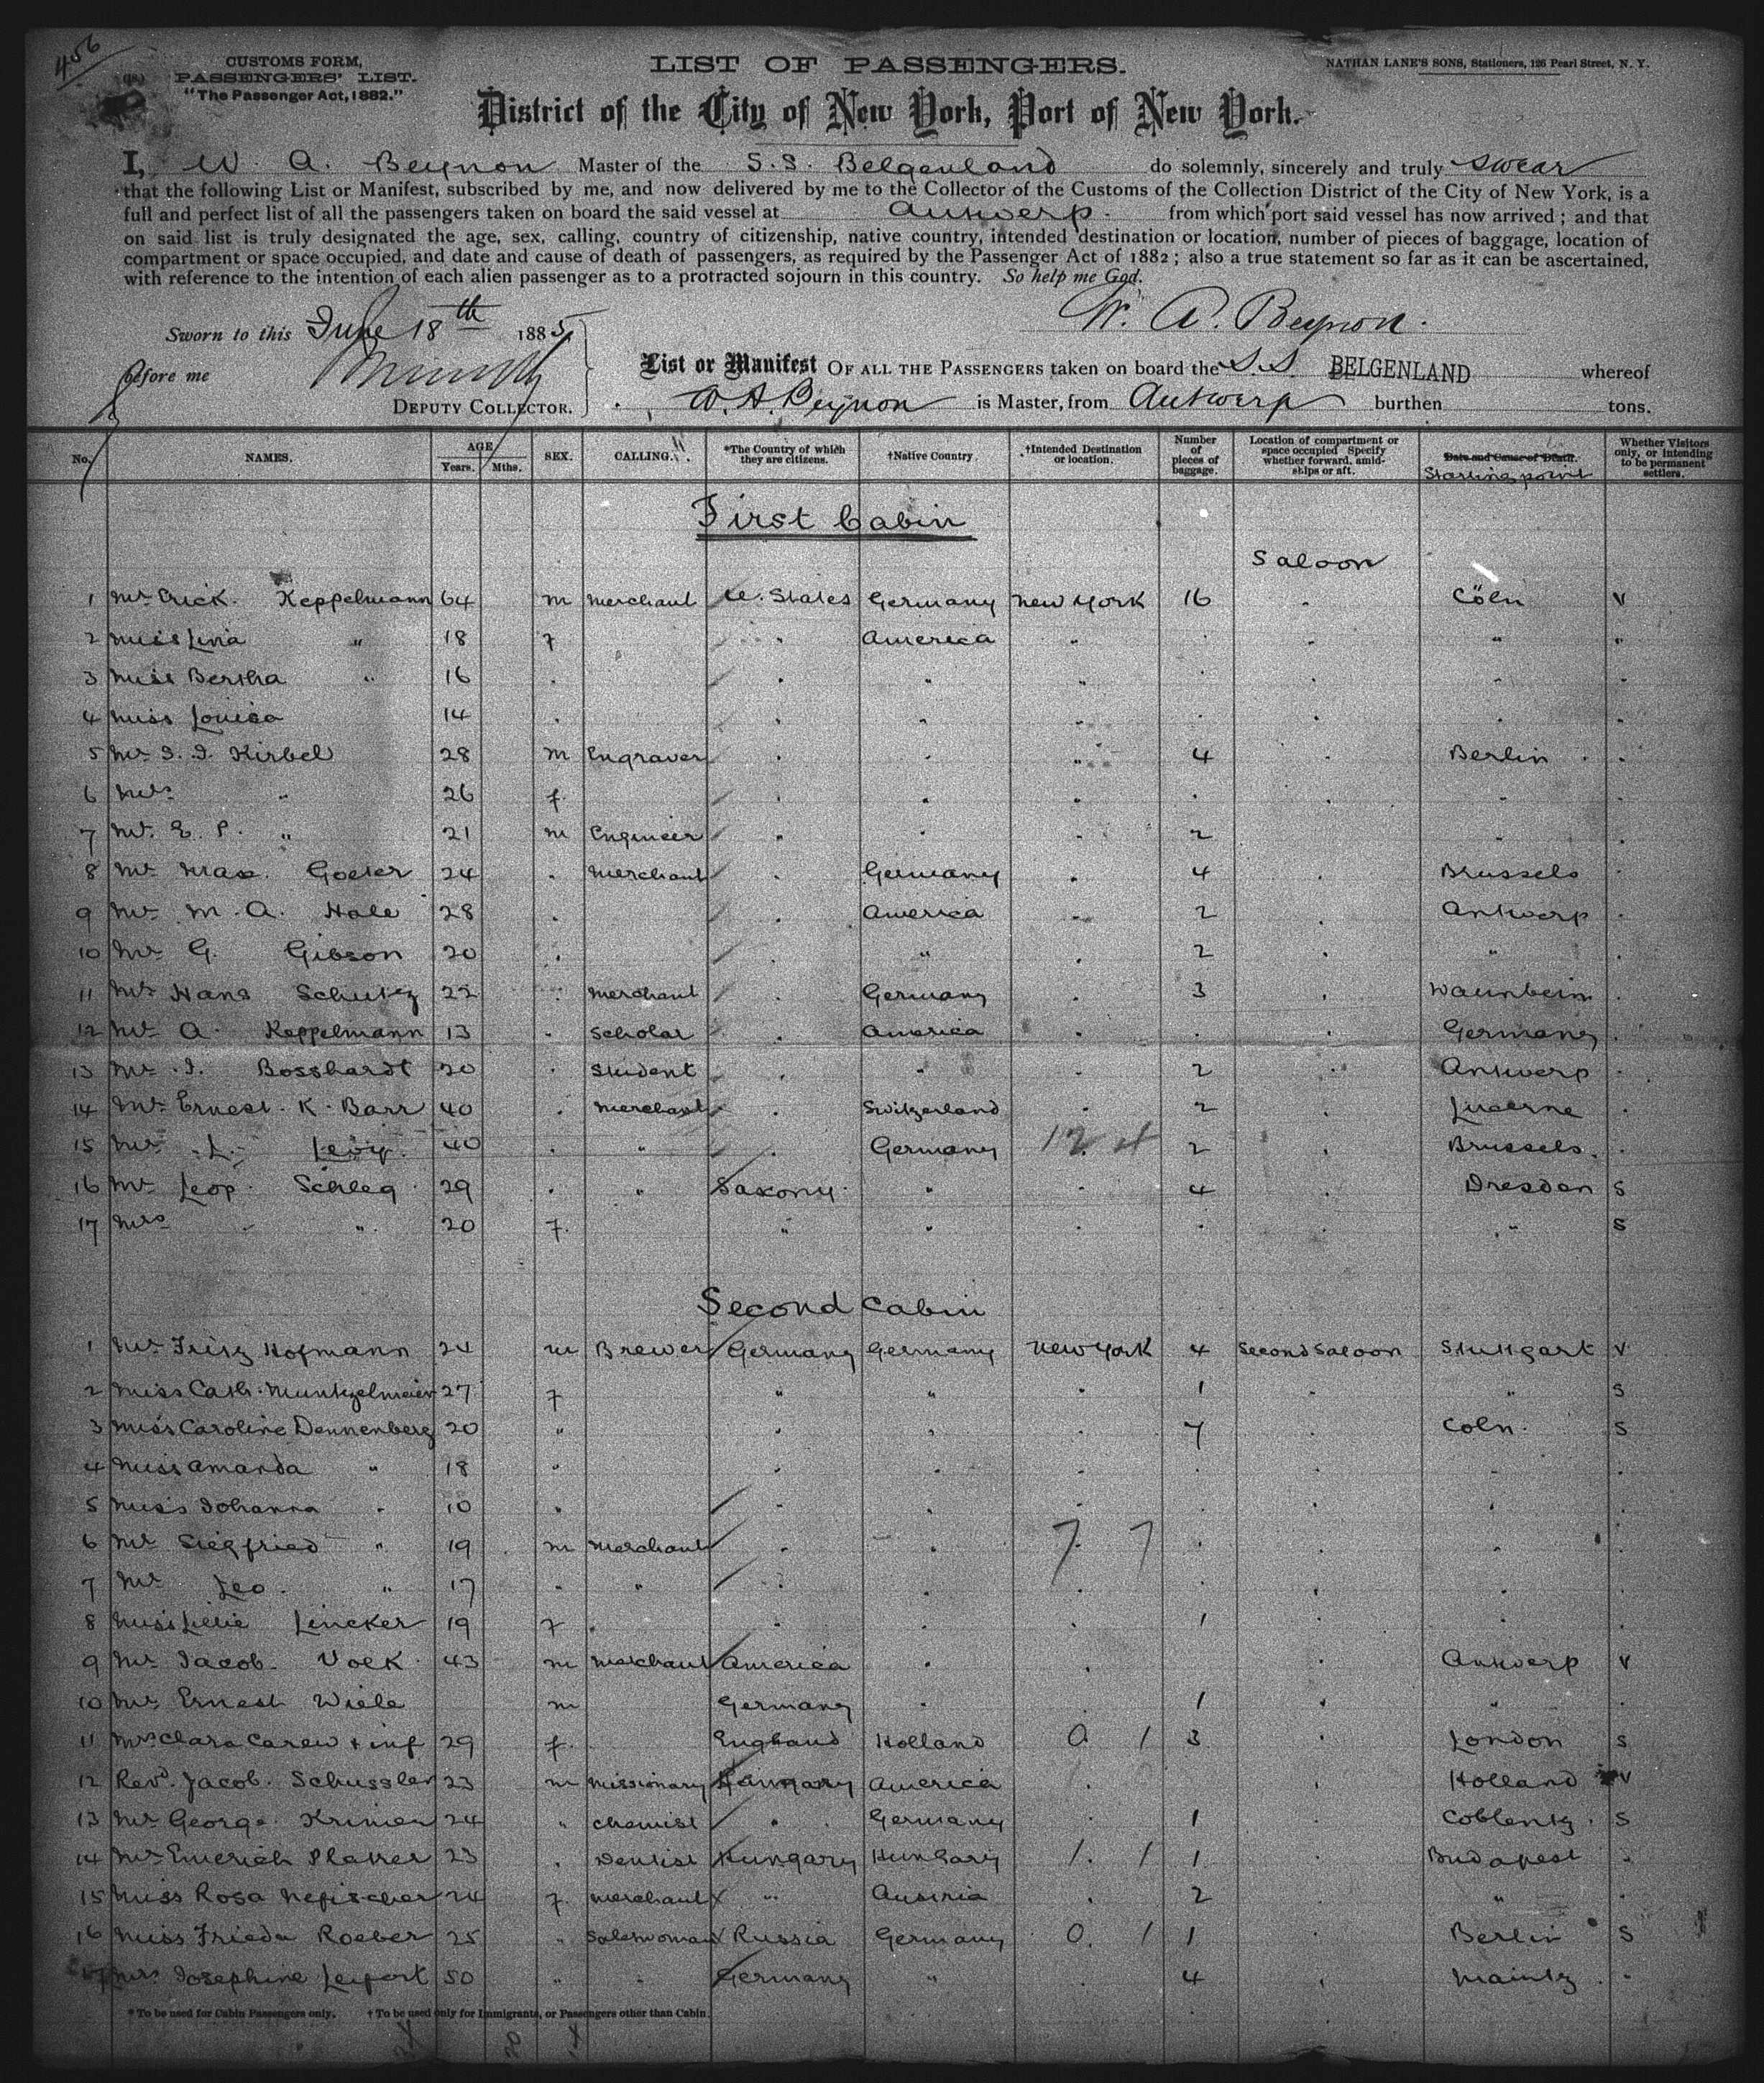 456
CUSTOMS FORM,
PASSENGERS' LIST.
"The Passenger Act, 1882."
LIST OF PASSENGERS.
NATHAN LANE'S SONS, Stationers, 126 Pearl Street, N. Y.
District of the City of New York, Port of New York.
I, W. A. Beynon Master of the S.S. Belgenland do solemnly, sincerely and truly swear
that the following List or Manifest, subscribed by me, and now delivered by me to the Collector of the Customs of the Collection District of the City of New York, is a
full and perfect list of all the passengers taken on board the said vessel at Antwerp from which port said vessel has now arrived; and that
on said list is truly designated the age, sex, calling, country of citizenship, native country, intended destination or location, number of pieces of baggage, location of
compartment or space occupied, and date and cause of death of passengers, as required by the Passenger Act of 1882; also a true statement so far as it can be ascertained,
with reference to the intention of each alien passenger as to a protracted sojourn in this country. So help me God.
Sworn to this June 18th 1885
W. A. Beynon.
before me
DEPUTY COLLECTOR.
List or Manifest OF ALL THE PASSENGERS taken on board the S.S. BELGENLAND whereof
W. A. Beynon is Master, from Antwerp burthen tons.
No. NAMES. AGE Years. Mths. SEX. CALLING. *The Country of which they are citizens. †Native Country. †Intended Destination or location. Number of pieces of baggage. Location of compartment or space occupied Specify whether forward, amidships or aft. Date and Cause of Death. Starting point Whether Visitors only, or intending to be permanent settlers.
First Cabin
Saloon
1 Mr Erick. Keppelmann 64 m Merchant U. States Germany New York 16 " Cöln V
2 Miss Lina " 18 f " America " " " " "
3 Miss Bertha " 16 " " " " " " " "
4 Miss Louisa 14 " " " " " " " "
5 Mr I. I. Kirbel 28 m Engraver " " " 4 " Berlin "
6 Mrs " 26 f. " " " " " " "
7 Mr. E. P. " 21 m Engineer " " " 2 " " "
8 Mr Max. Goeler 24 " Merchant " Germany " 4 Brussels "
9 Mr M. A. Hale 28 " " America " 2 " Antwerp "
10 Mr G. Gibson 20 " " " " 2 " "
11 Mr Hans Schultz 22 " Merchant " Germany " 3 " "
12 Mr A. Keppelmann 13 " Scholar " America " " " Germany "
13 Mr I. Bosshardt 20 " Student " " " 2 " Antwerp "
14 Mr Ernest. K. Barr 40 " Merchant " Switzerland " 2 " Lucerne "
15 Mr L. Levy. 40 " " " Germany 12 2 " Brussels. "
16 Mr Leop. Schleg 29 " " Saxony " " 4 " Dresden S
17 Mrs " 20 f. " " " " " " S
Second Cabin
1 Mr Fritz Hofmann 24 m Brewer Germany Germany New York 4 Second Saloon Stuttgart V
2 Miss Cath. Muntzelmeier 27 f " " " 1 " " S
3 Miss Caroline Dannenberg 20 " " " " 7 " Coln. S
4 Miss Amanda " 18 " " " " " " " "
5 Miss Johanna " 10 " " " " " " " "
6 Mr Siegfried " 19 m Merchant " " 7 7 " " "
7 Mr Leo. " 17 " " " " " " " "
8 Miss Lillie Lineker 19 f " " " " 1 " " "
9 Mr Jacob. Volk 43 m Merchant America " " " Antwerp V
10 Mr Ernest Wiele m Germany " 1 " " "
11 Mrs Clara Carew + inf 29 f. England Holland 0 1 3 " London S
12 Revd. Jacob. Schussler 23 m Missionary Hungary America " Holland V
13 Mr George Krimer 24 " Chemist " Germany " 1 " Coblentz. S
14 Mr Emerich Platter 23 " Dentist Hungary Hungary 1. 1 1 " Budapest "
15 Miss Rosa 24 f. Merchant " Austria " 2 " " "
16 Miss Frieda Roeber 25 " Saleswoman Russia Germany 0. 1 1 " Berlin S
17 Mrs Josephine 50 " " Germany " " 4 " Maintz. "
*To be used for Cabin Passengers only. †To be used only for Immigrants, or Passengers other than Cabin.